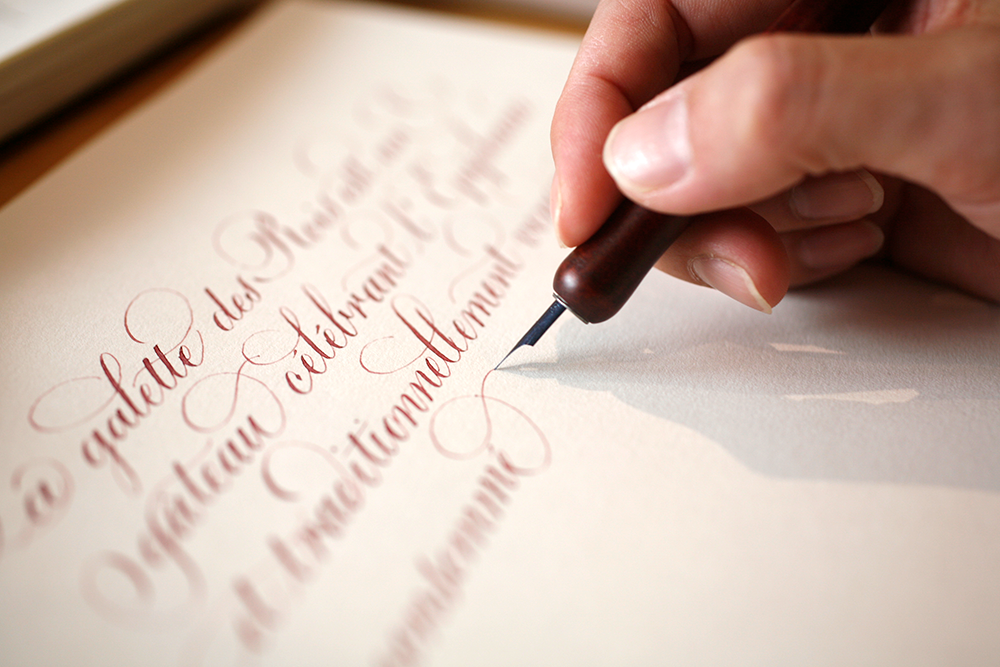 La galette des Rois est un
gateau célébrant l'Epiphanie
et traditionnellement